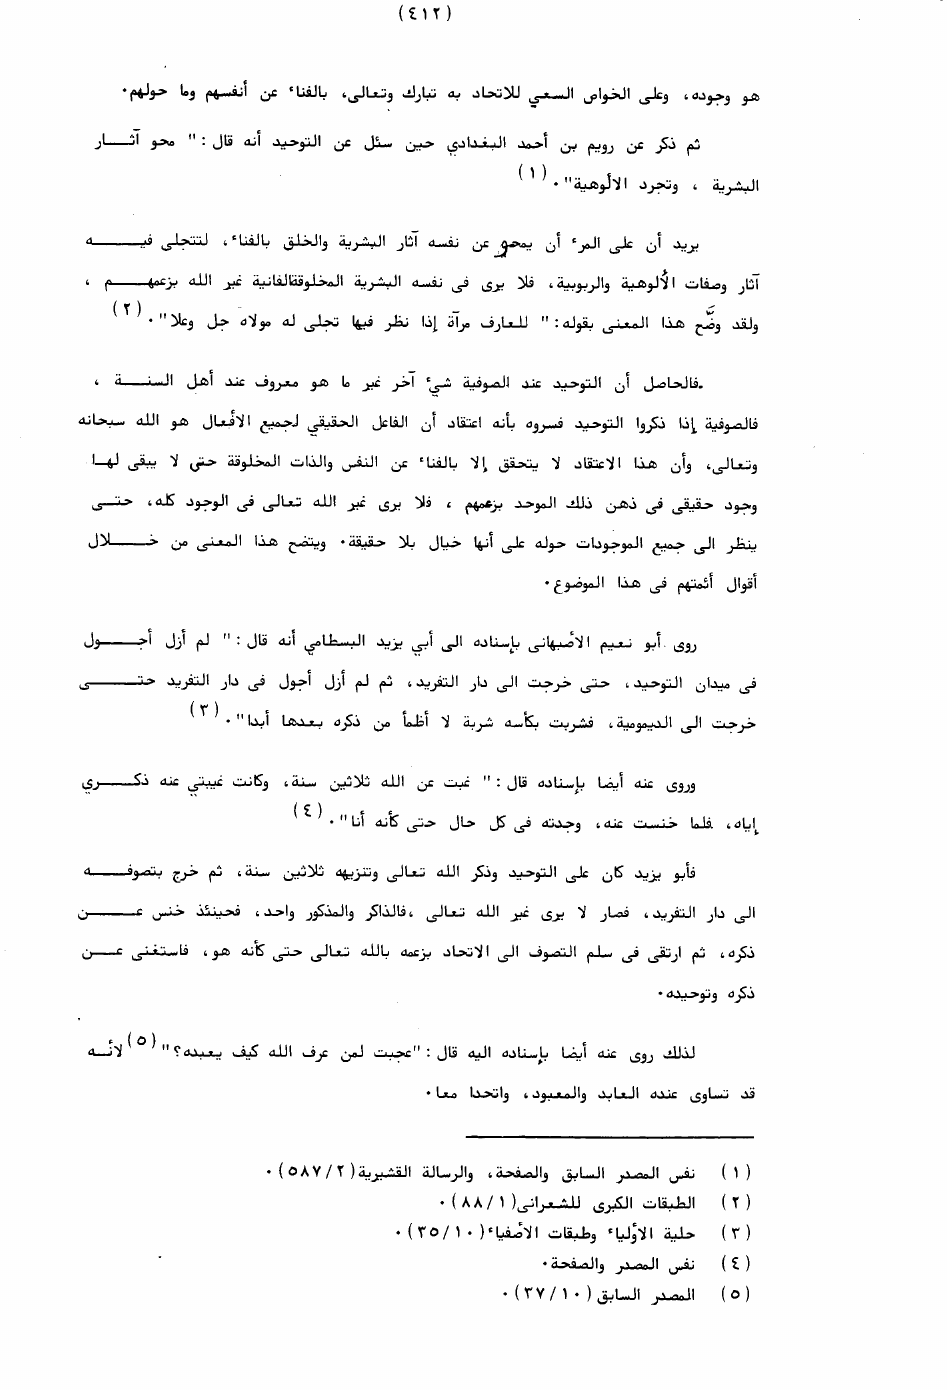 (٤١٢)
هو وجوده، وعلى الخواص السعي للاتحاد به تبارك وتعالى، بالفناء عن أنفسهم وما حولهم.
ثم ذكر عن رويم بن أحمد البغدادي حين سئل عن التوحيد أنه قال: " محو آثار
البشرية ، وتجرد الألوهية". (١)
يريد أن على المرء أن يمحو عن نفسه آثار البشرية والخلق بالفناء، لتتجلى فيه
آثار وصفات الألوهية والربوبية، فلا يرى فى نفسه البشرية المخلوقة الفانية غير الله بزعمهم ،
ولقد وضّح هذا المعنى بقوله: " للعارف مرآة إذا نظر فيها تجلى له مولاه جل وعلا". (٢)
فالحاصل أن التوحيد عند الصوفية شيء آخر غير ما هو معروف عند أهل السنة ،
فالصوفية إذا ذكروا التوحيد فسروه بأنه اعتقاد أن الفاعل الحقيقي لجميع الأفعال هو الله سبحانه
وتعالى، وأن هذا الاعتقاد لا يتحقق إلا بالفناء عن النفس والذات المخلوقة حتى لا يبقى لها
وجود حقيقى فى ذهن ذلك الموحد بزعمهم ، فلا يرى غير الله تعالى فى الوجود كله، حتى
ينظر الى جميع الموجودات حوله على أنها خيال بلا حقيقة. ويتضح هذا المعنى من خلال
أقوال أئمتهم فى هذا الموضوع.
روى أبو نعيم الأصبهانى بإسناده الى أبي يزيد البسطامي أنه قال: " لم أزل أجول
فى ميدان التوحيد، حتى خرجت الى دار التفريد، ثم لم أزل أجول فى دار التفريد حتى
خرجت الى الديمومية، فشربت بكأسه شربة لا أظمأ من ذكره بعدها أبدا". (٣)
وروى عنه أيضا بإسناده قال: " غبت عن الله ثلاثين سنة، وكانت غيبتي عنه ذكري
إياه، فلما خنست عنه، وجدته فى كل حال حتى كأنه أنا". (٤)
فأبو يزيد كان على التوحيد وذكر الله تعالى وتنزيهه ثلاثين سنة، ثم خرج بتصوفه
الى دار التفريد، فصار لا يرى غير الله تعالى ،فالذاكر والمذكور واحد، فحينئذ خنس عن
ذكره، ثم ارتقى فى سلم التصوف الى الاتحاد بزعمه بالله تعالى حتى كأنه هو، فاستغنى عن
ذكره وتوحيده.
لذلك روى عنه أيضا بإسناده اليه قال: "عجبت لمن عرف الله كيف يعبده؟" (٥) لأنه
قد تساوى عنده العابد والمعبود، واتحدا معا.
(١) نفس المصدر السابق والصفحة، والرسالة القشيرية (٥٨٧/٢).
(٢) الطبقات الكبرى للشعرانى (٨٨/١).
(٣) حلية الأولياء وطبقات الأصفياء (٣٥/١٠).
(٤) نفس المصدر والصفحة.
(٥) المصدر السابق (٣٧/١٠).